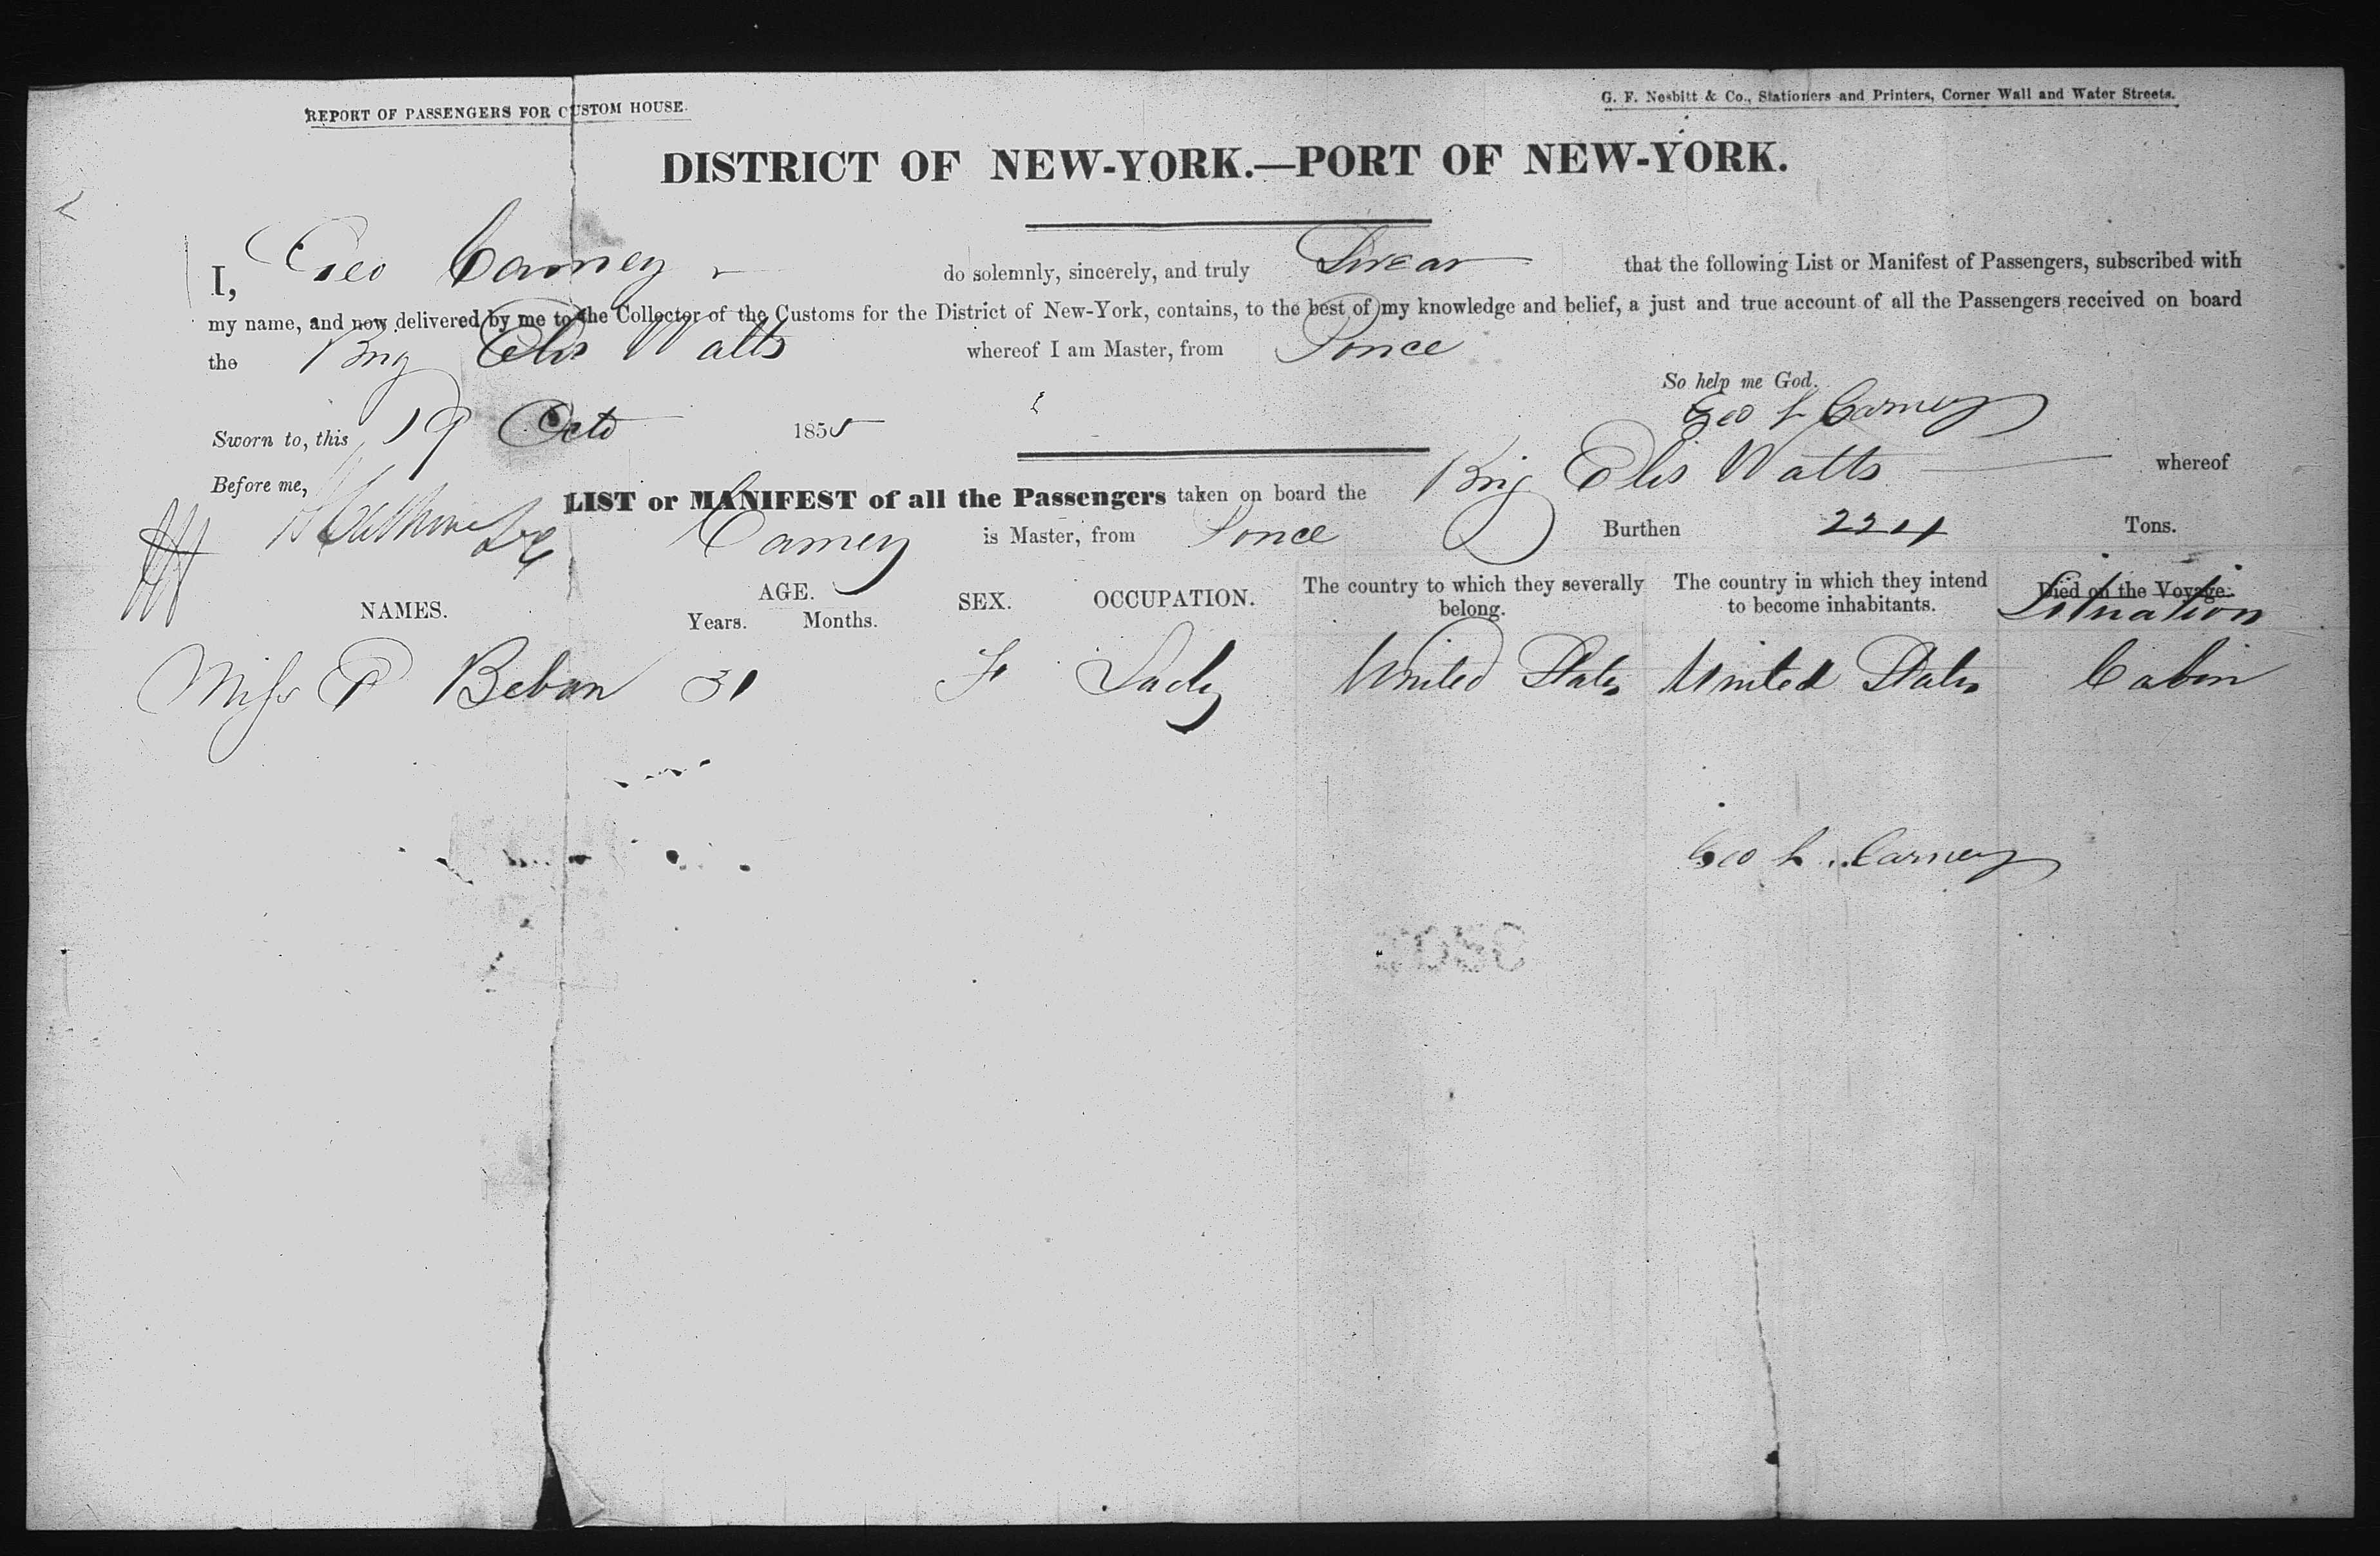 REPORT OF PASSENGERS FOR CUSTOM HOUSE.
G. F. Nesbitt & Co., Stationers and Printers, Corner Wall and Water Streets.
DISTRICT OF NEW-YORK.—PORT OF NEW-YORK.
I, Geo Carney do solemnly, sincerely, and truly Swear that the following List or Manifest of Passengers, subscribed with
my name, and now delivered by me to the Collector of the Customs for the District of New-York, contains, to the best of my knowledge and belief, a just and true account of all the Passengers received on board
the Brig Elis Watts whereof I am Master, from Ponce
So help me God.
Geo L Carney
Sworn to, this 19 Octo 1855
Before me,
LIST or MANIFEST of all the Passengers taken on board the Brig Elis Watts whereof
Carney is Master, from Ponce Burthen Tons.
NAMES. AGE. Years. Months. SEX. OCCUPATION. The country to which they severally belong. The country in which they intend to become inhabitants. Died on the Voyage. Situation
Miss P Beban 31 F Lady United States United States Cabin
Geo L Carney